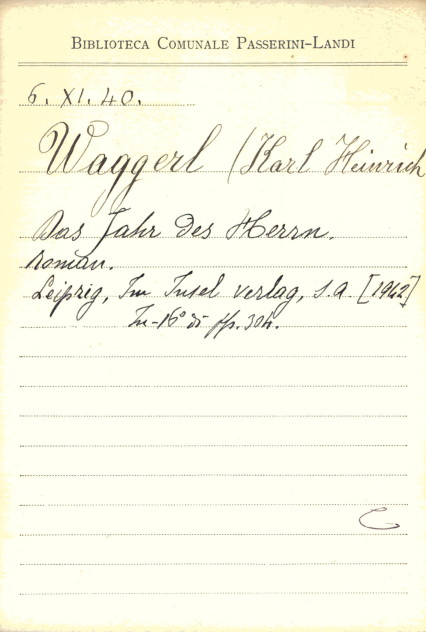 BIBLIOTECA COMUNALE PASSERINI-LANDI
6. XI. 40.
Waggerl (Karl Heinrich
Das Jahr des Herrn.
Roman.
Leipzig, Im Insel verlag, s.a. [1942]
In-16° di pp. 304.